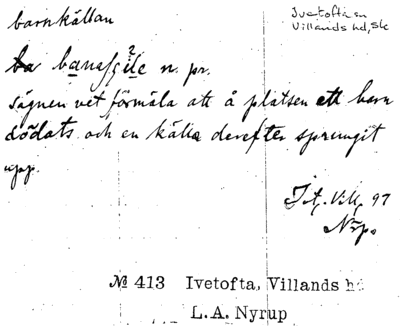 barnkällan
Ivetofta sn
Villands hd, Sk
n. pr.
sägnen vet förmäla att å platsen ett barn
dödats och en källa derefter sprungit
upp.
Ivt. Vill. 97
Nrp.
№ 413 Ivetofta, Villands hd
L.A. Nyrup